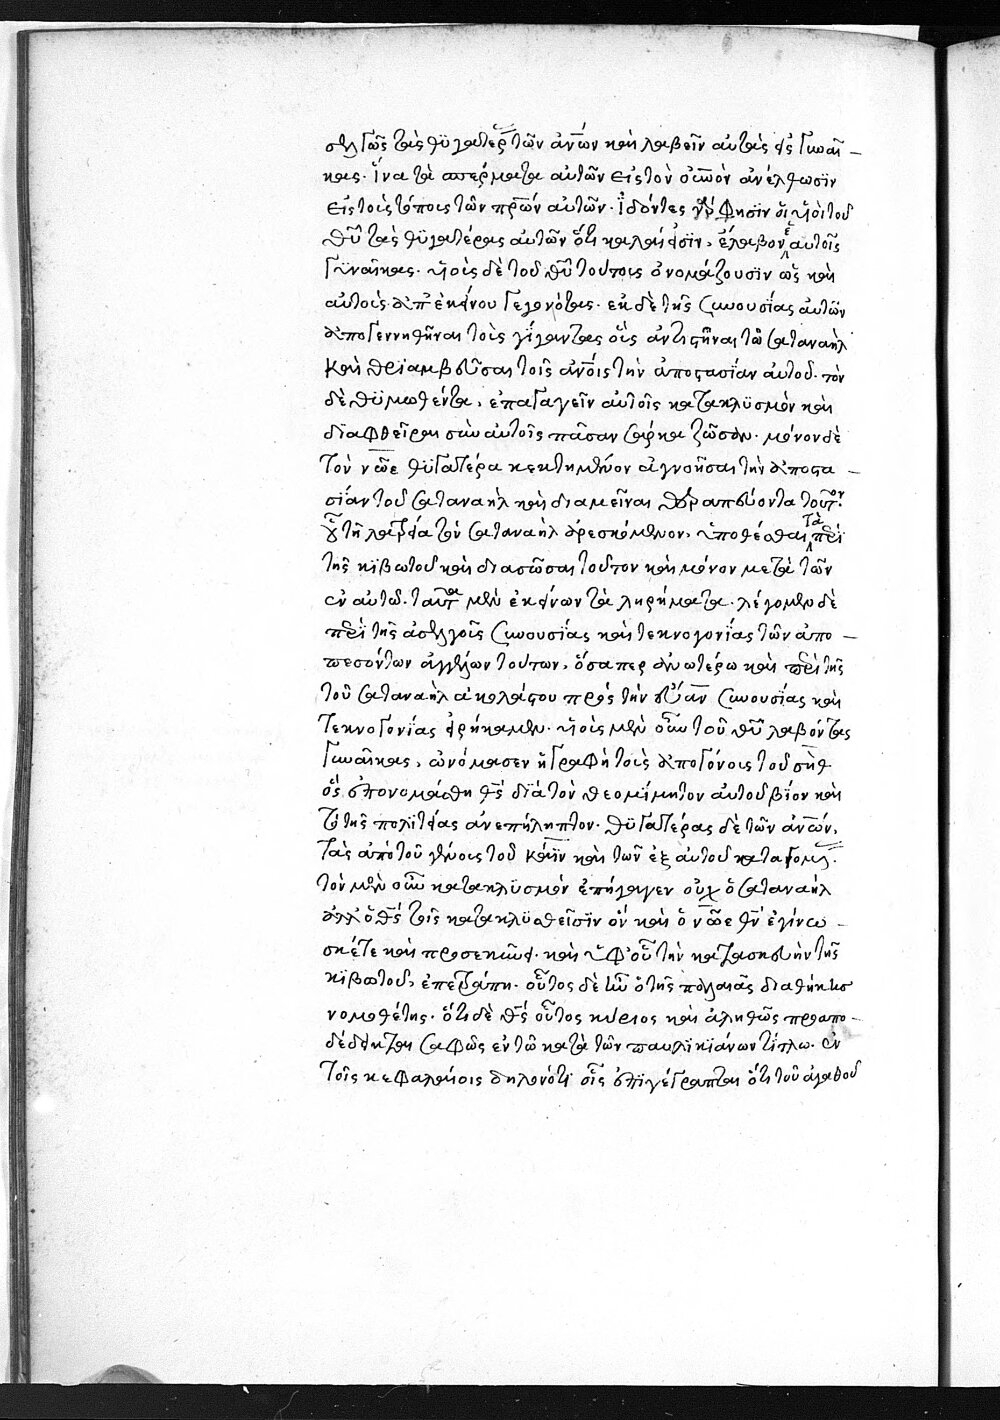 στελγῶς τὰς θϋγατερ τῶν ἀνων καὶ λαβεῖν αὐτὰς εἰς γυναῖ-
κας. ἵνα τὰ σπέρματα αὐτῶν εἰς τὸν οὐνὸν ἀνέλθωσϊν
εἰς τοὺς τόπους τῶν πρων αὐτῶν. ἰδόντες γάρ φησϊν οἱ υἱοὶ τοῦ
θυ τὰς θϋγατέρας αὐτῶν ὅτι καλαί εἰσϊν, ἔλαβον ἑαυτοῖς
γϋναῖκας. υἱοὺς δὲ τοῦ θυ τούτους ὀνομάζουσϊν ὡς καὶ
αὐτοὺς ἀπ' ἐκείνου γεγονότας. ἐκ δὲ τῆς συνουσίας αὐτῶν
ἀπογεννηθῆναι τοὺς γίγαντας οὓς ἀντιστῆναι τῶ σαταναὴλ
καὶ θριαμβεῦσαι τοῖς ἀνοις τὴν ἀποστασίαν αὐτοῦ. τὸν
δὲ θϋμωθέντα, ἐπαγαγεῖν αὐτοῖς κατακλϋσμὸν καὶ
διαφθεῖραι σὺν αὐτοῖς πᾶσαν σάρκα ζῶσαν. μόνον δὲ
τὸν νῶε θϋγατέρα κεκτημένον ἀγνοῆσαι τὴν ἀποστα-
σίαν τοῦ σαταναὴλ καὶ διαμεῖναι θεραπεύοντα τοῦτον.
οὗ τῆ λατρεία τὸν σαταναὴλ ἀρεσκόμενον, ὑποθέσθαι τὰ περὶ
τῆς κϊβωτοῦ καὶ διασῶσαι τοῦτον καὶ μόνον μετὰ τῶν
σὺν αὐτῶ. ταῦτα μὲν ἐκείνων τὰ ληρήματα. λέγομεν δὲ
περὶ τῆς ἀσελγοῦς συνουσίας καὶ τεκνογονίας τῶν ἀπο-
πεσόντων ἀγγέλων τούτων, ὅσαπερ ἀνωτέρω καὶ περὶ τῆς
τοῦ σαταναὴλ ἀκολάστου πρὸς τὴν εὔαν συνουσίας καὶ
τεκνογονίας εἰρήκαμεν. υἱοὺς μὲν οὖν τοῦ θυ λαβόντας
γυναῖκας, ὠνόμασεν ἡ γραφὴ τοὺς ἀπογόνους τοῦ σὴθ
ὃς ἐπονομάσθη θς διὰ τὸν θεομίμητον αὐτοῦ βίον καὶ
τὸ τῆς πολιτείας ἀνεπίληπτον. θϋγατέρας δὲ τῶν ἀνων,
τὰς ἀπὸ τοῦ γένους τοῦ κάϊν καὶ τῶν ἐξ αὐτοῦ
τὸν μὲν οὖν κατακλϋσμὸν ἐπήγαγεν οὐχ ὁ σαταναὴλ
ἀλλ' ὁ θς τοῖς κατακλϋσθεῖσϊν ὃν καὶ ὁ νῶε θν ἐγίνω-
σκέ τε καὶ προσεκύνει. καὶ ὑφ' οὗ τὴν κατασκευὴν τῆς
κϊβωτοῦ, ἐπετράπη. οὗτος δὲ ἦν ὁ τῆς παλαιᾶς διαθήκης
νομοθέτης. ὅτι δὲ θς οὗτος κύριος καὶ ἀληθῶς προαπο-
δέδεικται σαφῶς ἐν τῶ κατὰ τῶν παυλϊκϊάνων τίτλω. ἐν
τοῖς κεφαλαίοις δηλονότι οἷς ἐπϊγέγραπται ὅτι τοῦ ἀγαθοῦ